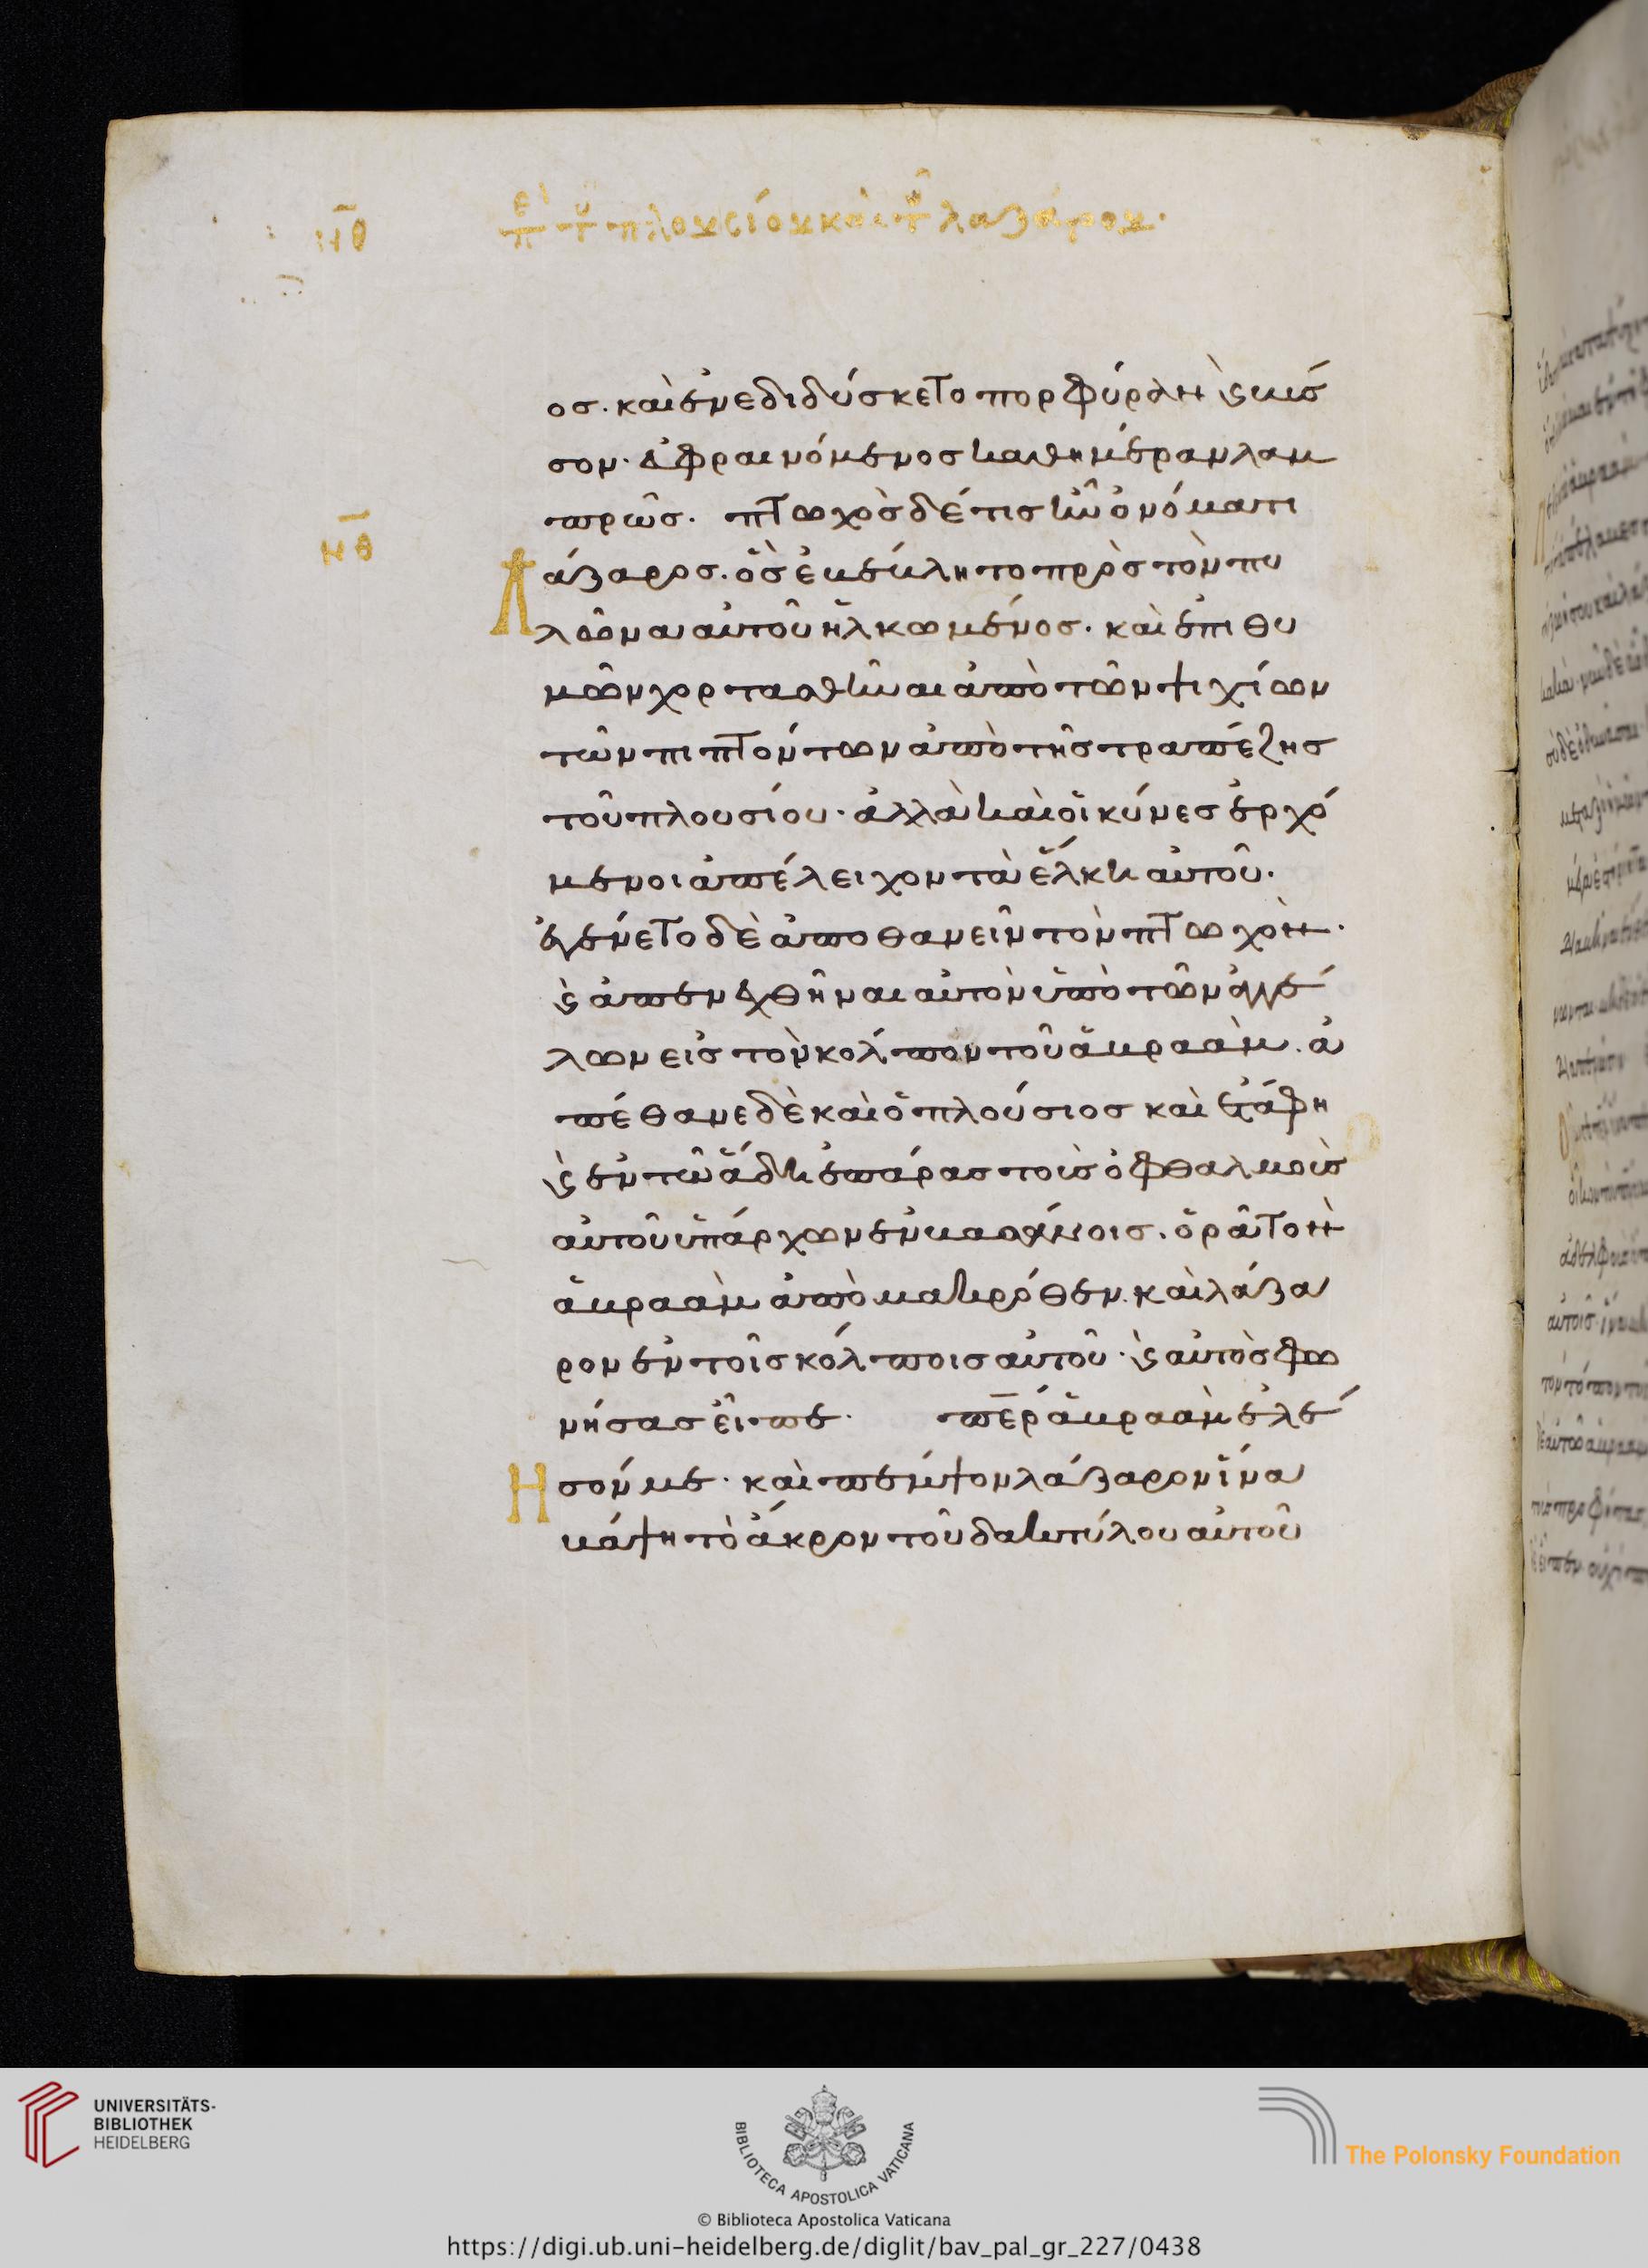 ΝΘ
περὶ τοῦ πλουσίου καὶ τοῦ λαζάρου·
ος. καὶ ἐνεδιδύσκετο πορφύραν ϗ βύσ
σον· εὐφραινόμενος καθημέραν λαμ
πρῶς. πτωχὸς δέ τις ἦν ὀνόματι
ΝΘ
Λάζαρος. ὃς ἐβέβλητο πρὸς τὸν πυ
λῶνα αὐτοῦ ἡλκωμένος. καὶ ἐπιθυ
μῶν χορτασθῆναι ἀπὸ τῶν ψιχίων
τῶν πιπτόντων ἀπὸ τῆς τραπέζης
τοῦ πλουσίου· ἀλλὰ καὶ οἱ κύνες ἐρχό
μενοι ἀπέλειχον τὰ ἕλκη αὐτοῦ.
ἐγένετο δὲ ἀποθανεῖν τὸν πτωχόν.
ϗ ἀπενεχθῆναι αὐτὸν ὑπὸ τῶν ἀγγέ
λων εἰς τὸν κόλπον τοῦ ἁβραάμ. ἀ
πέθανε δὲ καὶ ὁ πλούσιος καὶ ἐτάφη
ϗ ἐν τῷ ἅδη ἐπάρας τοὺς ὀφθαλμοὺς
αὐτοῦ ὑπάρχων ἐν βασάνοις. ὁρᾷ τὸν
ἁβραὰμ ἀπὸ μακρόθεν. καὶ λάζα
ρον ἐν τοῖς κόλποις αὐτοῦ· ϗ αὐτὸς φω
νήσας εἶπε· περ ἁβραὰμ ἐλέ
Ησόν με· καὶ πέμψον λάζαρον ἵνα
βάψη τὸ ἄκρον τοῦ δακτύλου αὐτοῦ
UNIVERSITÄTS-
BIBLIOTHEK
HEIDELBERG
BIBLIOTECA APOSTOLICA VATICANA
The Polonsky Foundation
© Biblioteca Apostolica Vaticana
https://digi.ub.uni-heidelberg.de/diglit/bav_pal_gr_227/0438